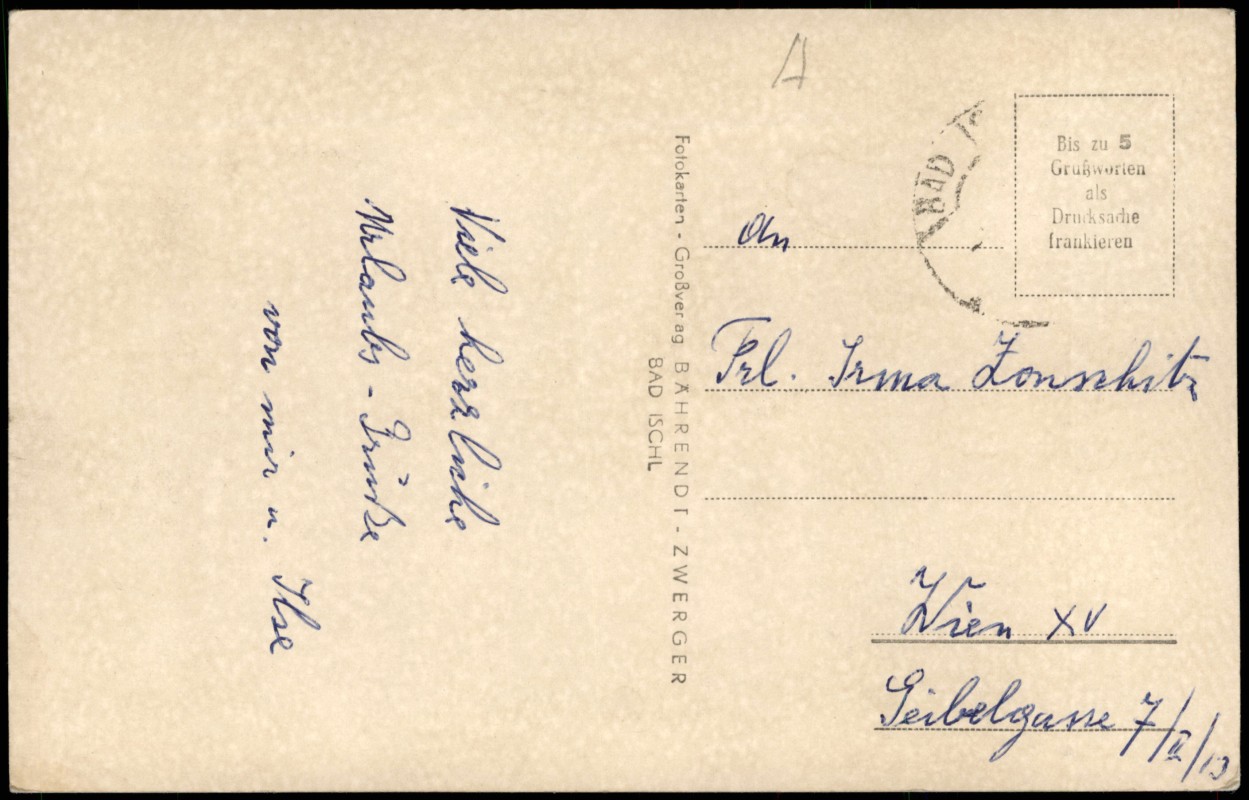 Viele herzliche
Urlaubs - Grüße
von mir u. Ilse
Fotokarten - Großver ag BÄHRENDT - ZWERGER
BAD ISCHL
A
BAD
Bis zu 5
Grußworten
als
Drucksache
frankieren
An
Frl. Irma Zonschitz
Wien XV
Geibelgasse 7/II/13